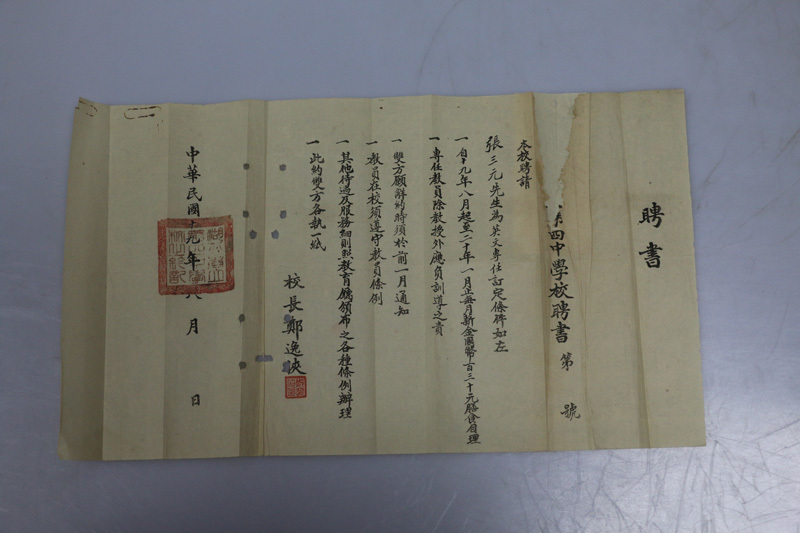 聘書
第四中學校聘書 第 號
本校聘請
張三元先生為英文專任訂定條件如左
一自十九年八月起至二十年一月止每月薪金國幣百三十元膳食自理
一專任教員除教授外應負訓導之責
一雙方願辭約時須於前一月通知
一教員在校須遵守教員條例
一其他待遇及服務細則照教育廳頒布之各種條例辦理
一此約雙方各執一紙
校長鄭逸俠
中華民國十九年八月 日